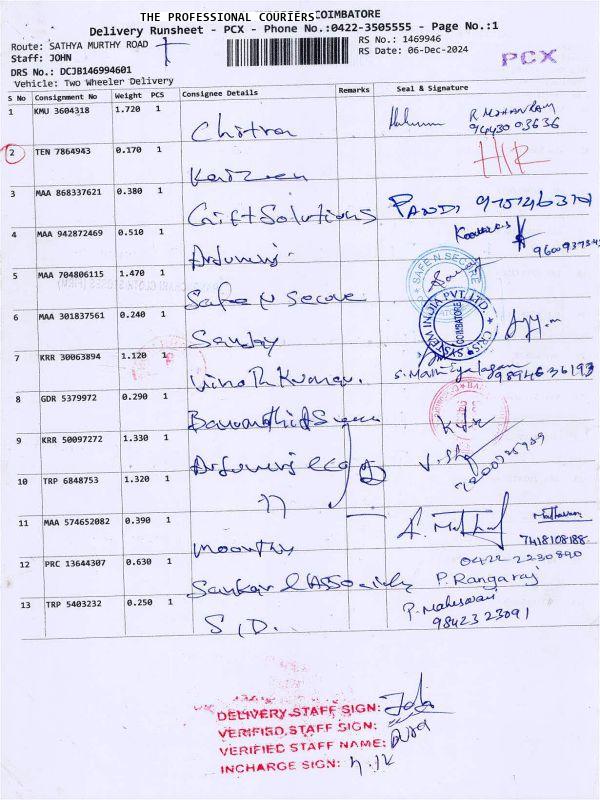 THE PROFESSIONAL COURIERS COIMBATORE
Delivery Runsheet - PCX - Phone No.:0422-3505555 - Page No.:1
Route: SATHYA MURTHY ROAD
RS No.: 1469946
Staff: JOHN
RS Date: 06-Dec-2024
PCX
DRS No.: DCJB146994601
Vehicle: Two Wheeler Delivery
S No Consignment No Weight PCS Consignee Details Remarks Seal & Signature
1 KMU 3604318 1.720 1 Chitra R. MOHANRAM
9443003636
2 TEN 7864943 0.170 1 Kaizen
3 MAA 868337621 0.380 1 Gift Solutions PANDI
4 MAA 942872469 0.510 1
5 MAA 704806115 1.470 1 Safe N Secure SAFE N SECURE
6 MAA 301837561 0.240 1 Sanjay SYSTEM INDIA PVT. LTD. COIMBATORE
7 KRR 30063894 1.120 1 Vinoth Kumar. 9894636193
8 GDR 5379972 0.290 1
9 KRR 50097272 1.330 1
10 TRP 6848753 1.320 1 "
11 MAA 574652082 0.390 1 moorthy Mathavan
7418108188
12 PRC 13644307 0.630 1 Sankar & Associates 0422 2230890
P. Rangaraj
13 TRP 5403232 0.250 1 S.I.D. P. Maheswari
98423 23091
DELIVERY STAFF SIGN:
VERIFIED STAFF SIGN:
VERIFIED STAFF NAME:
INCHARGE SIGN: